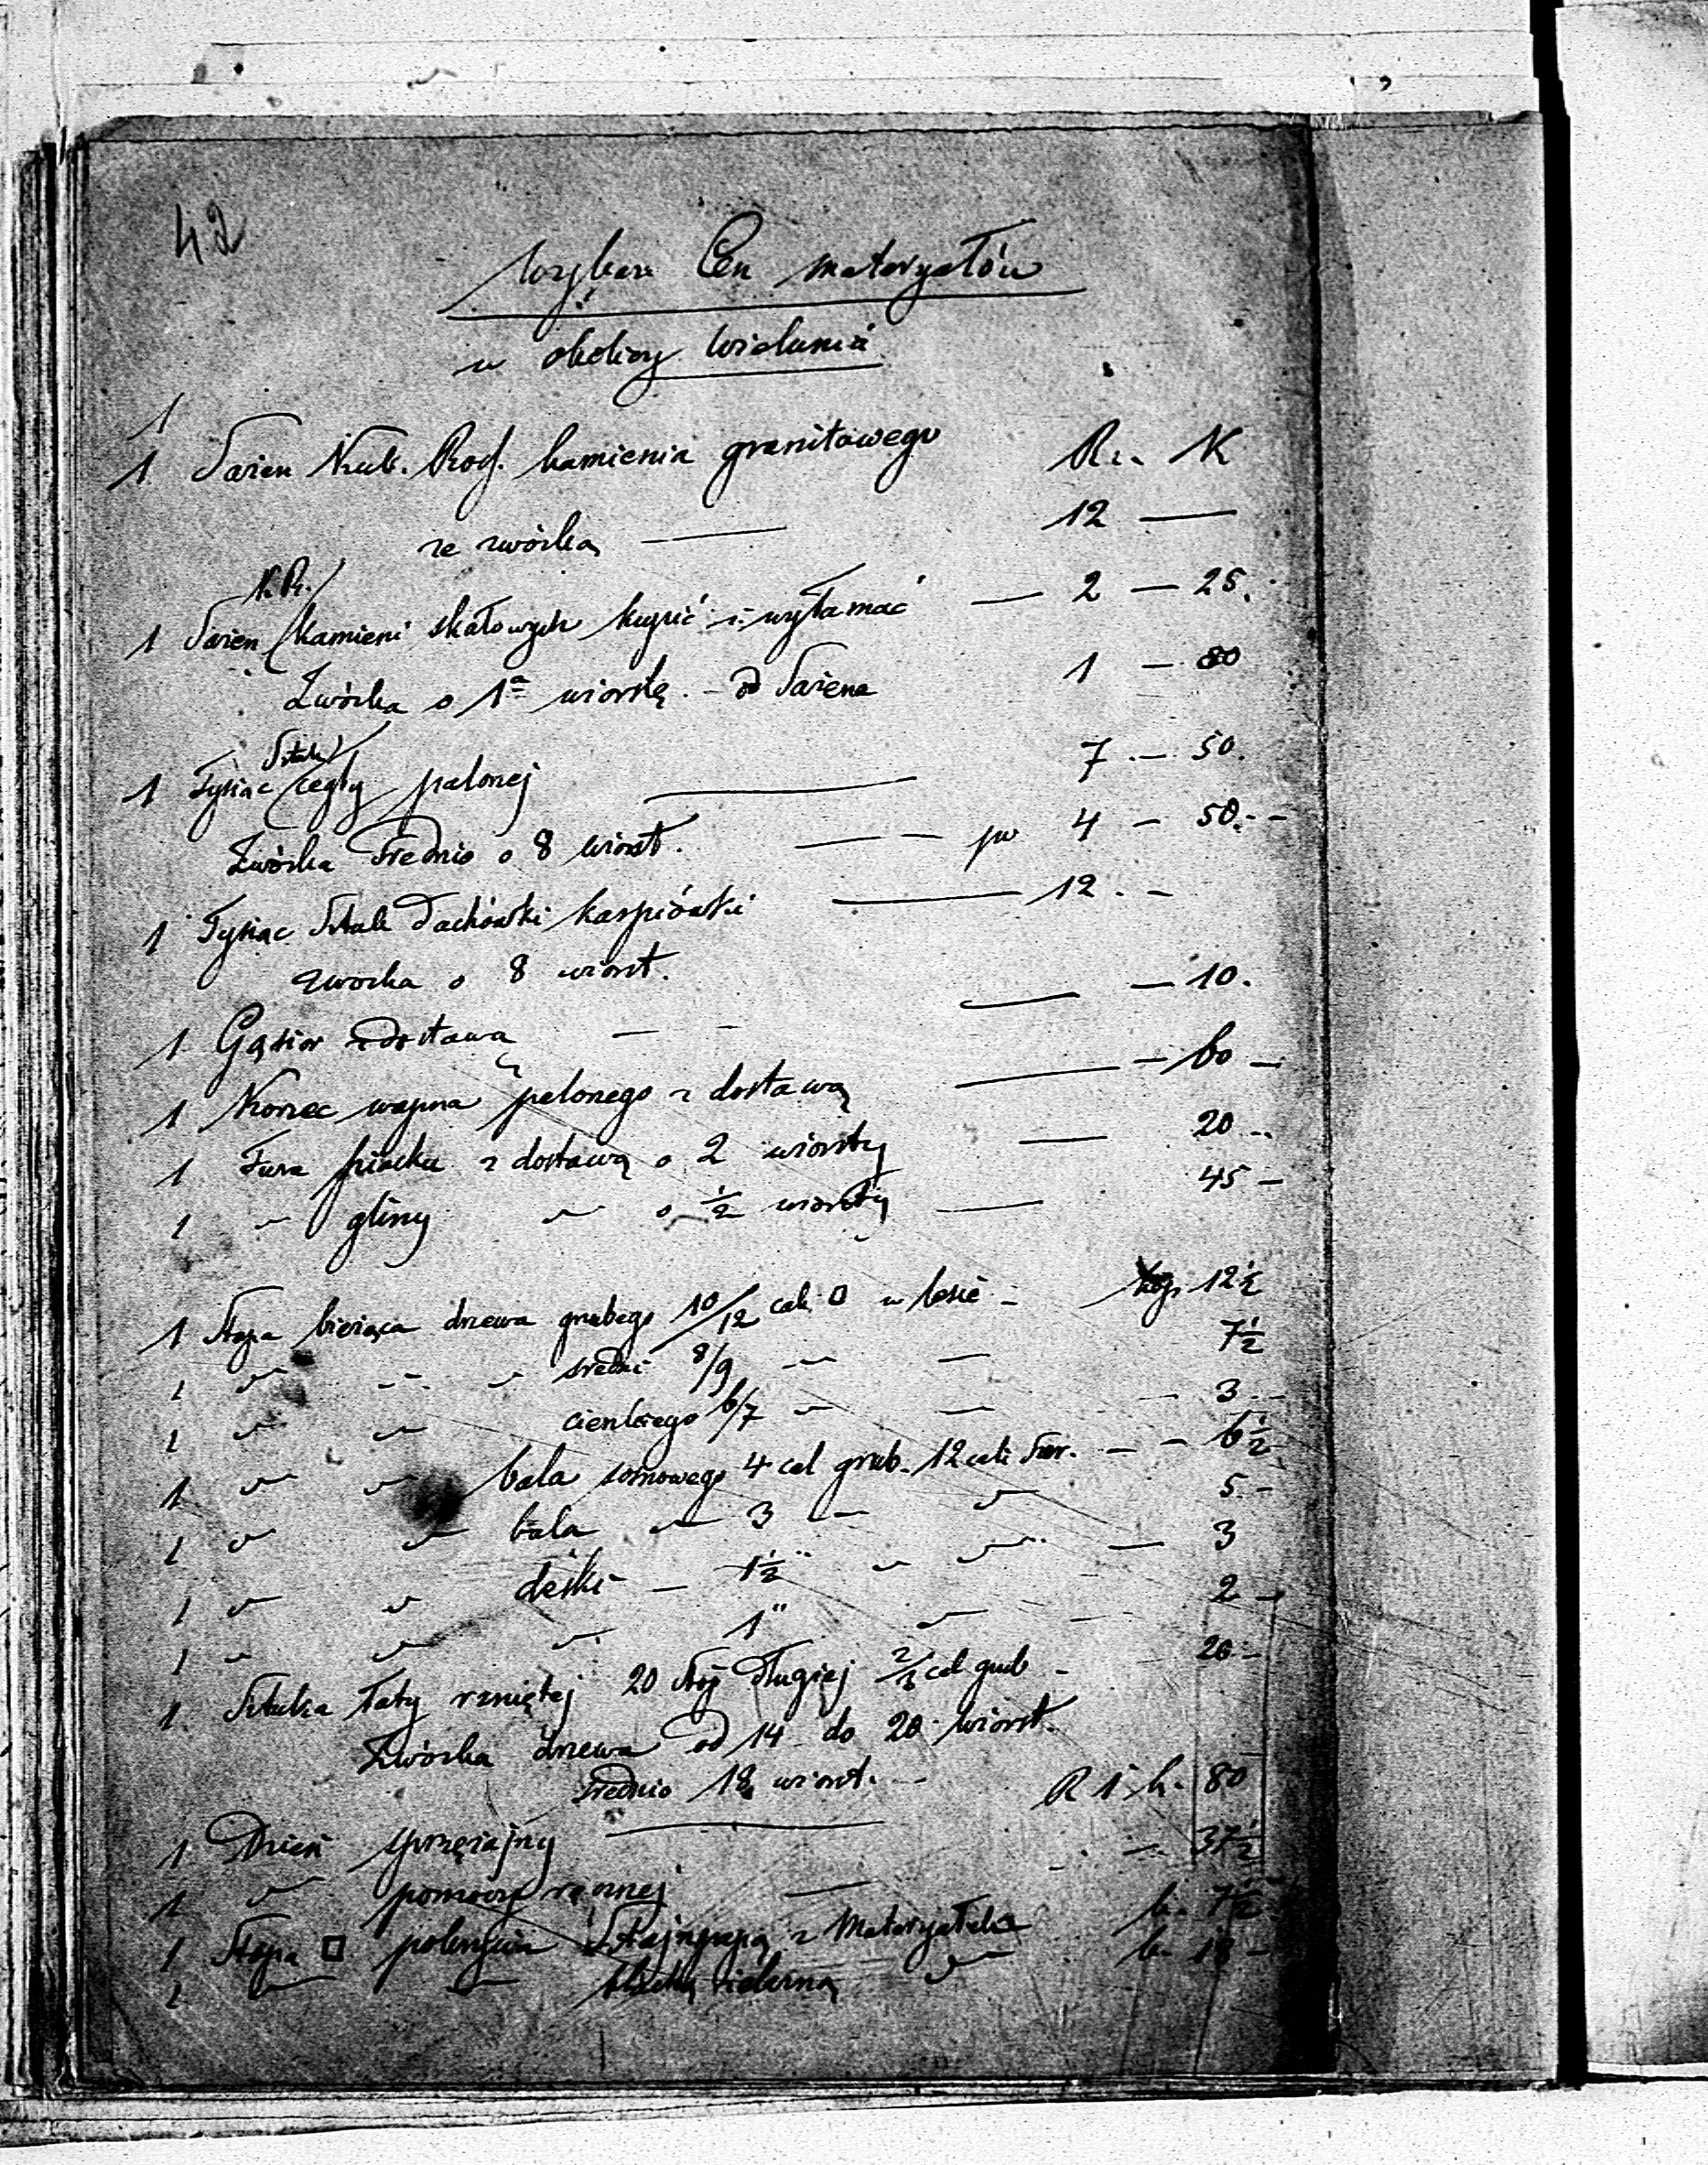 42
Wykaz Cen materyałów
w okolicy Wielunia
1
1 Sążeń Kub. Ros. kamienia granitowego R. K
ze zwózką — 12 —
K. R.
1 Sążeń kamieni skałowych kupić i wyłamać — 2 — 25.
Zwózka o 1ą wiorstę - od Sążena 1 — 80
Sztuk
1 Tysiąc cegły palonej — 7 — 50.
Zwózka średnio o 8 wiorst. — po 4 — 50. -
1 Tysiąc Sztuk Dachówki karpiówki — 12 . -
zwózka o 8 wiorst.
1 Gąsior z dostawą — — — 10.
1 Korzec wapna palonego z dostawą — — 60 —
1 Fura piasku z dostawą o 2 wiorsty — 20 -
1 " gliny " o ½ wiorsty — 45 -
1 Stopa bieżąca drzewa grubego 10/12 cali □ w lesie - kop. 12½
1 " " " średni 8/9 " — 7½
1 " " cienkiego 6/7 " — - 3 -
1 " " bala sosnowego 4 cal grub. 12 cali szer. — - 6½
1 " " bala " 3 " " 5. -
1 " " deski - 1½" " " — 3
1 " " " 1" " - 2 -
1 Sztuka łaty rzniętej 20 stóp długiej 2/3 cal grub - 20 -
Zwózka drzewa od 14 do 20 wiorst.
średnio 18 wiorst. - R 1 k. 80
1 Dzień sprzężajny — - 37½
1 " pomocy ręcznej — k. 7½
1 Stopa □ pokrycia z Materyałem k. 18 -
1 " " blachą żelazną "